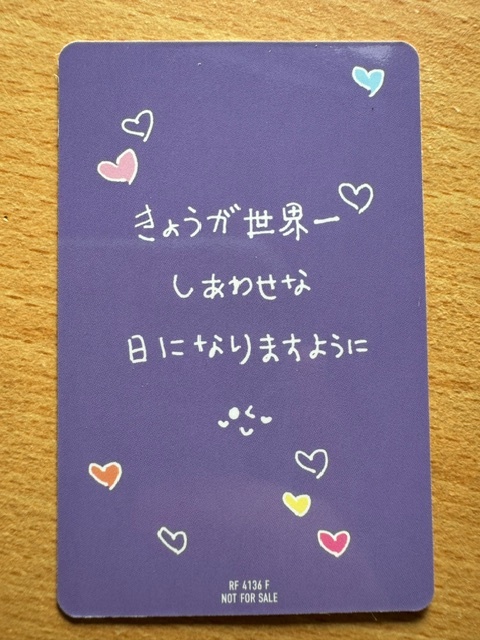 きょうが世界一
しあわせな
日になりますように
RF 4136 F
NOT FOR SALE